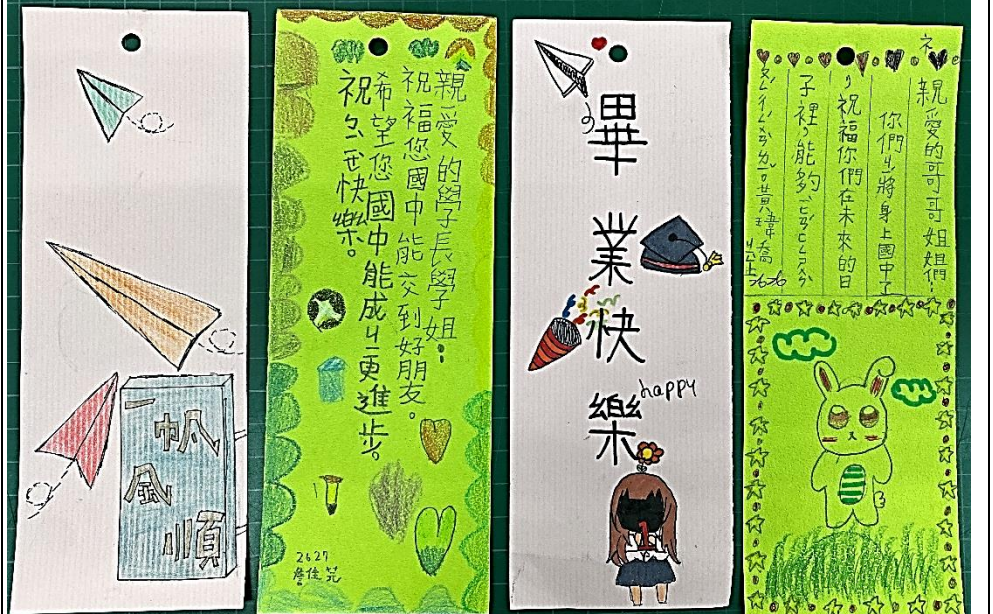 一帆
風
順
親愛的學長學姐：
祝福您國中能交到好朋友。
希望您國中能成ㄐㄧ更進步。
祝 快樂。
2627
畢業快樂
happy
親愛的哥哥姐姐們：
你們 將身上國中了
，祝福你們在未來的日
子裡，能夠
黃瑋喬
2626